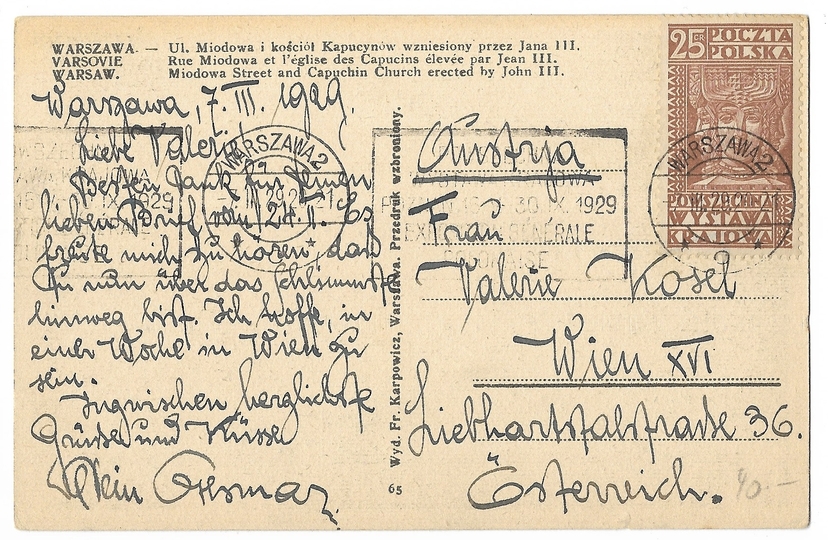 WARSZAWA. — Ul. Miodowa i kościół Kapucynów wzniesiony przez Jana III.
VARSOVIE Rue Miodowa et l'église des Capucins élevée par Jean III.
WARSAW. Miodowa Street and Capuchin Church erected by John III.
Warszawa, 7. III. 1929.
Liebe Valerie!
Besten Dank für Deinen
lieben Brief vom 24. II. Es
freute mich zu hören, daß
Du nun über das Schlimmste
hinweg bist. Ich hoffe, in
einer Woche in Wien zu
sein.
Inzwischen herzlichste
Grüße und Küsse
Dein
Wyd. Fr. Karpowicz, Warszawa. Przedruk wzbroniony.
65
25 GR POCZTA
POLSKA
POWSZECHNA
WYSTAWA
KRAJOWA
WARSZAWA 2
WARSZAWA 2
IX 1929
30 IX 1929
GÉNÉRALE
Austrja
Frau
Valerie Kosel
Wien XVI
Liebhartstalstraße 36.
Österreich.
40.-